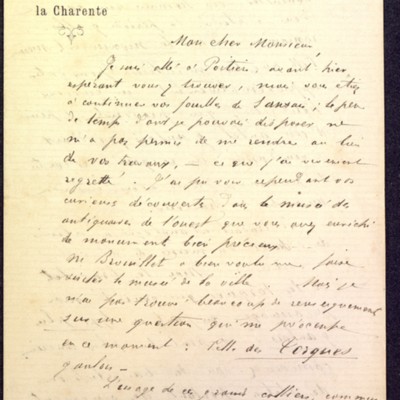 la Charente
Mon cher Monsieur
Je suis allé à Poitiers, avant hier,
espérant vous y trouver, mais vous étiez
à continuer vos fouilles de Sanxai; le peu
de temps dont je pouvais disposer ne
m'a pas permis de me rendre au lieu
de vos travaux, — ce que j'ai vivement
regretté. J'ai pu voir cependant vos
curieuses découvertes dans le musée des
antiquaires de l'ouest que vous avez enrichi
de monuments bien précieux.
M Brouillet a bien voulu me faire
visiter le musée de la ville. Mais je
n'ai pas trouvé beaucoup de renseignements
sur une question qui me préoccupe
en ce moment: celle des Torques
gaulois—
L'usage de ces grands colliers, comme